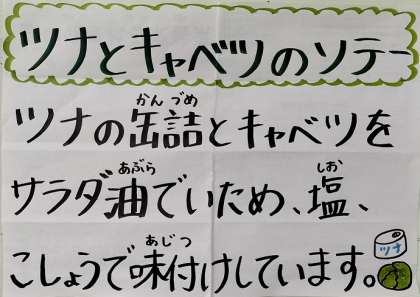 ツナとキャベツのソテー
かんづめ
ツナの缶詰とキャベツを
あぶら しお
サラダ油でいため、塩、
あじつ
こしょうで味付けしています。
ツナ